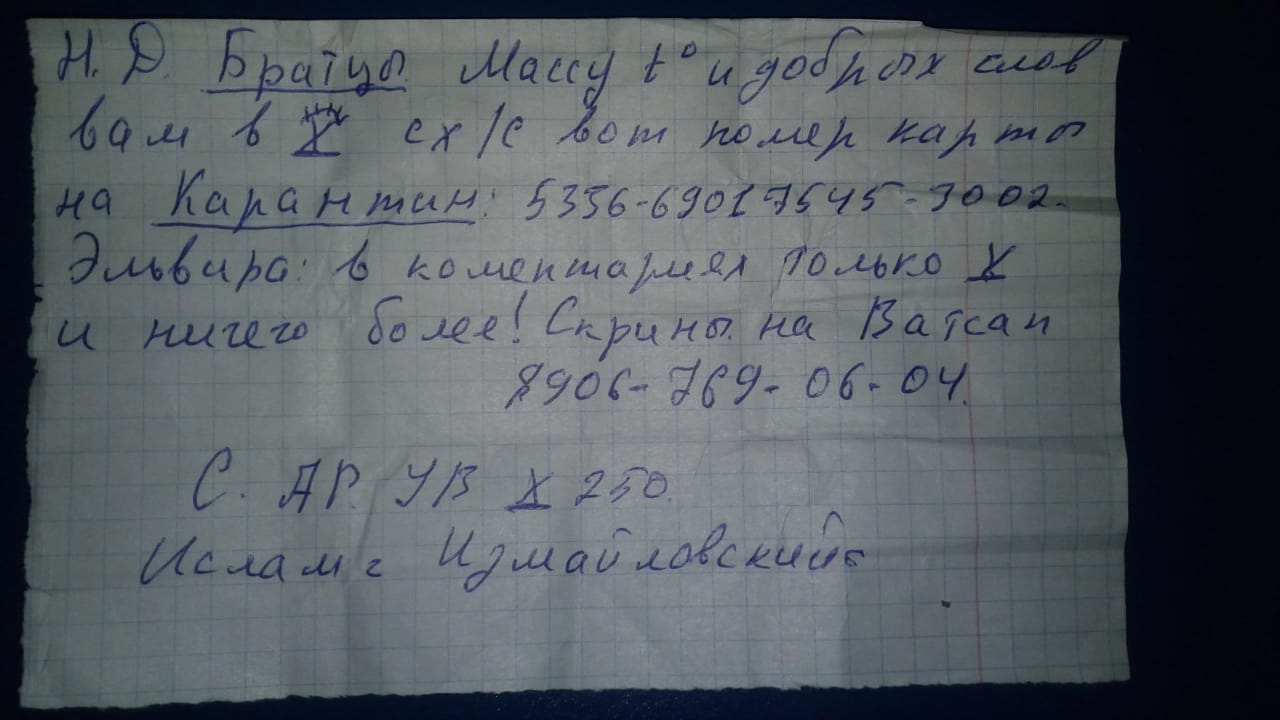 Н. Д. Братцы. Массу t° и добрых слов
вам в Х сх/с вот номер карты
на Карантин: 5336-69017545-3002.
Эльвира: в коментариях только Х
и ничего более! Скрины на Ватсап
8906-769-06-04.
С. АР. УВ Х 250.
Ислам г Измайловский